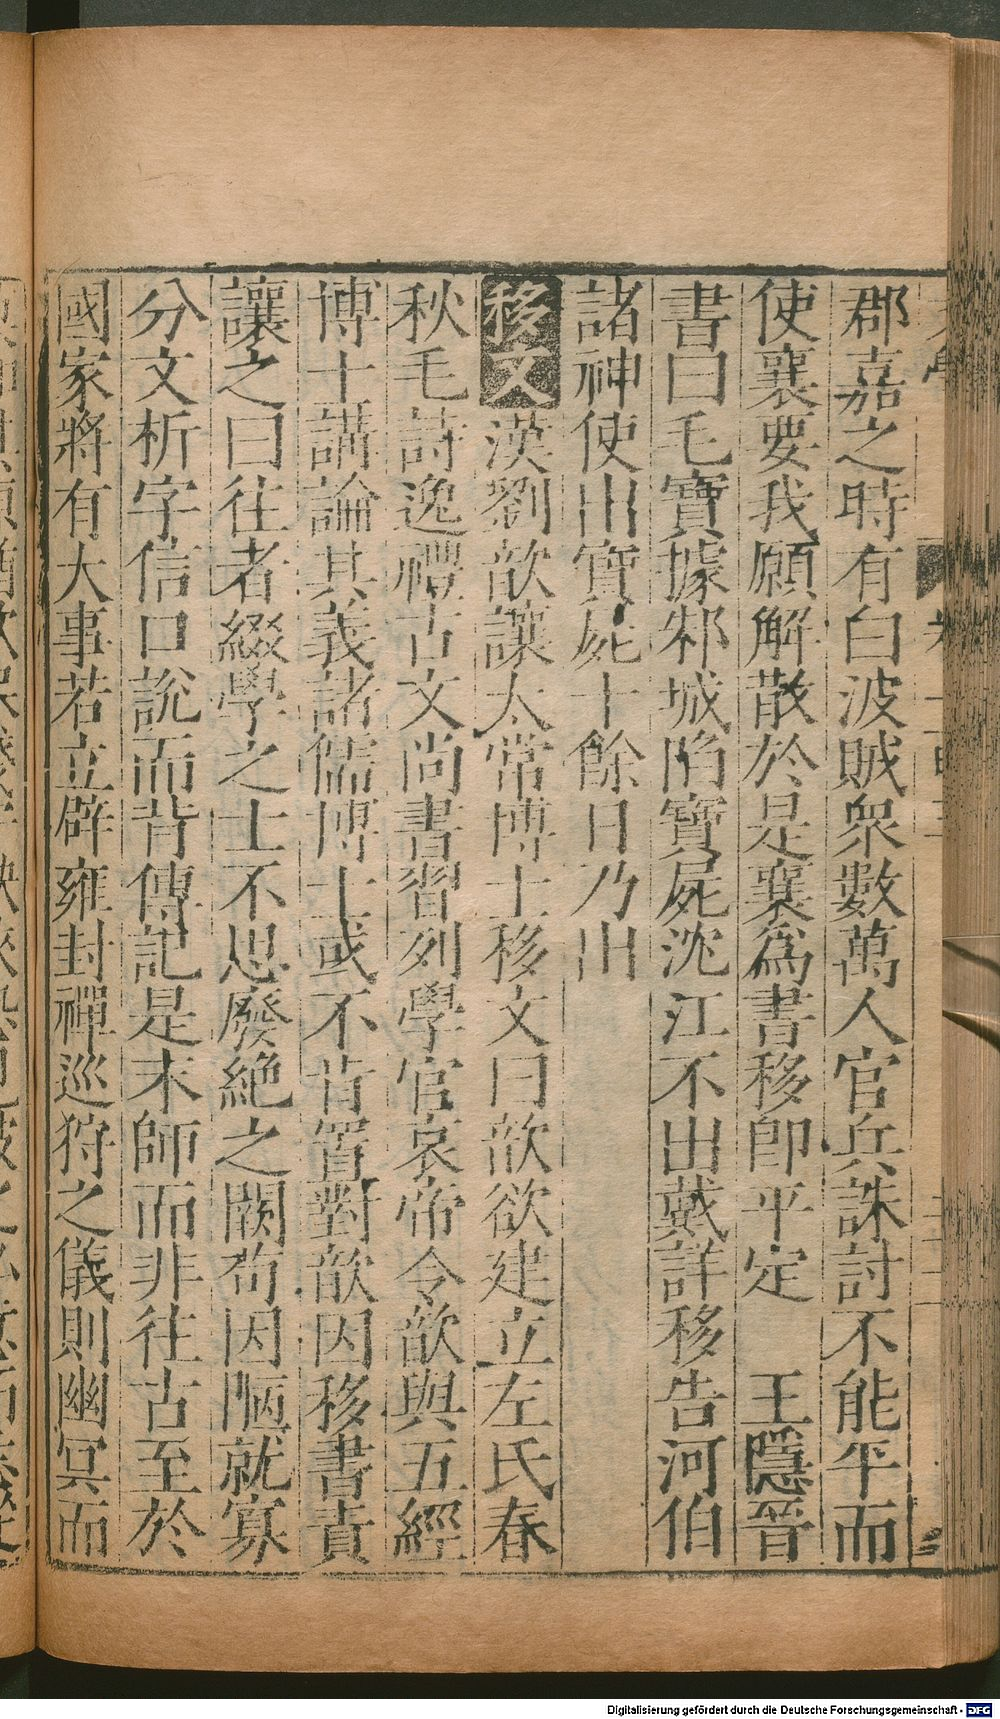 郡嘉之時有白波賊衆數萬人官兵誅討不能平而
使襄要我願解散於是襄爲書移即平定 王隱晉
書曰毛寶據邾城陷寶屍沈江不出戴詳移告河伯
諸神使出寶屍十餘日乃出
移文漢劉歆讓太常博士移文曰歆欲建立左氏春
秋毛詩逸禮古文尚書習列學官哀帝令歆與五經
博士講論其義諸儒博士或不肯置對歆因移書責
讓之曰往者綴學之士不思廢絶之闕苟因陋就寡
分文析字信口說而背傳記是末師而非往古至於
國家將有大事若立辟雍封禪巡狩之儀則幽冥而
Digitalisierung gefördert durch die Deutsche Forschungsgemeinschaft - DFG